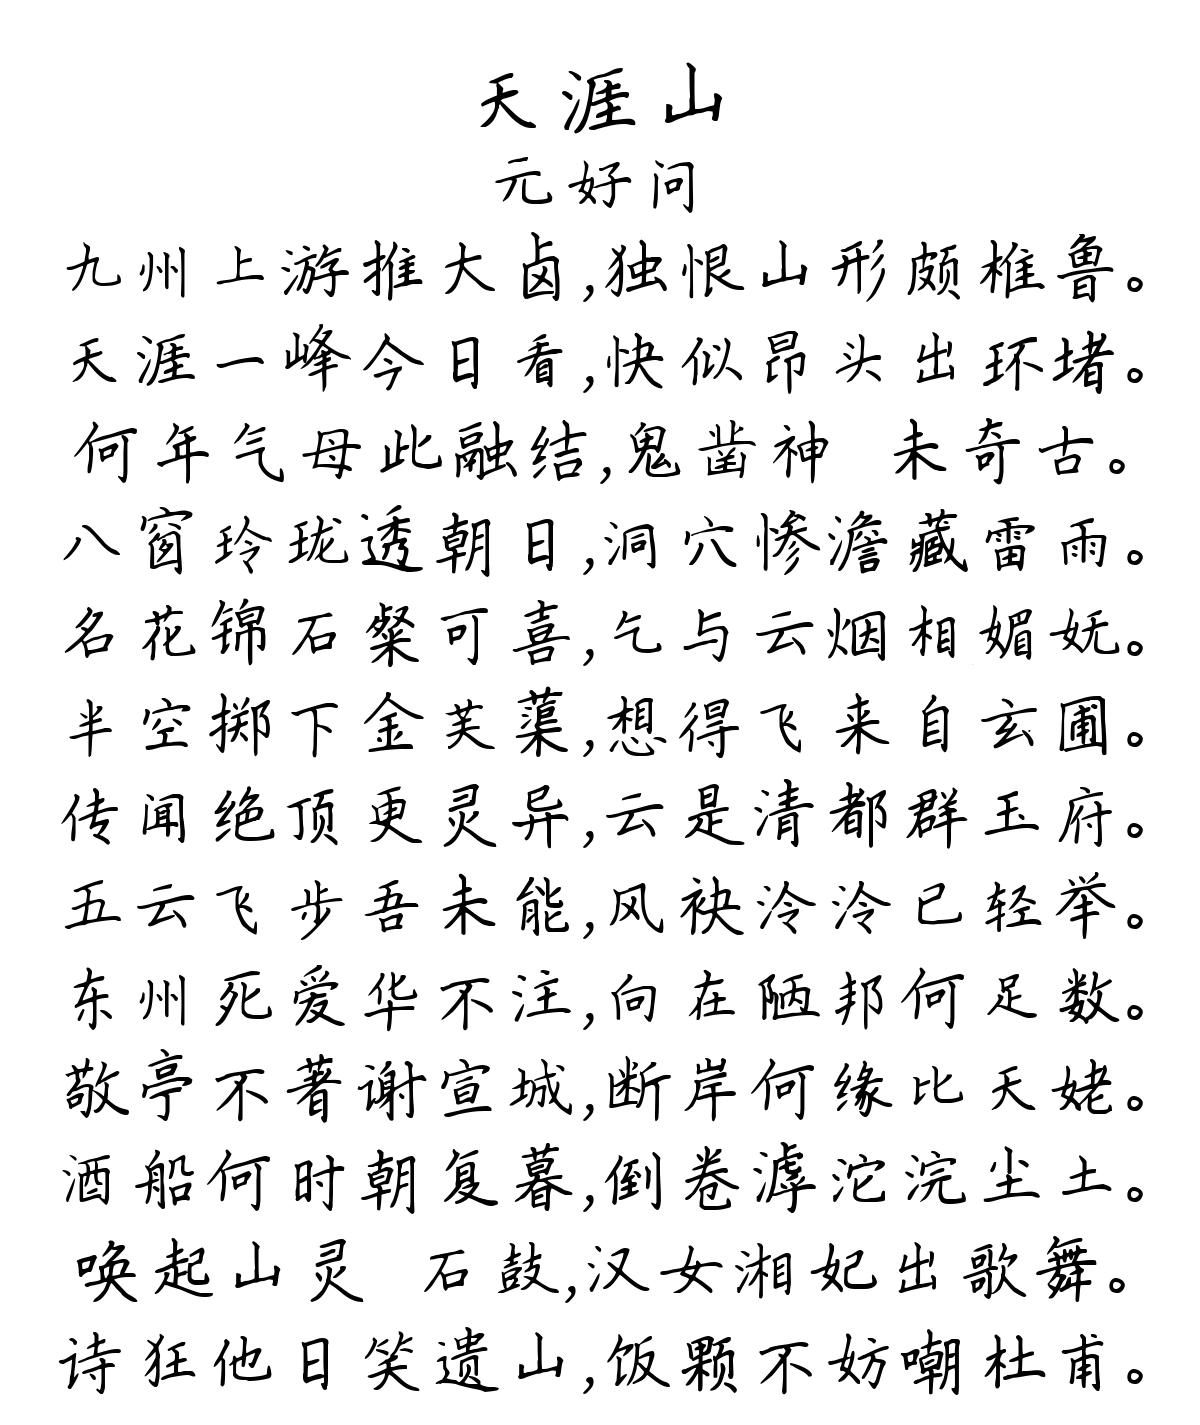 天涯山
元好问
九州上游推大卤,独恨山形颇椎鲁。
天涯一峰今日看,快似昂头出环堵。
何年气母此融结,鬼凿神 未奇古。
八窗玲珑透朝日,洞穴惨澹藏雷雨。
名花锦石粲可喜,乞与云烟相媚妩。
半空掷下金芙蕖,想得飞来自玄圃。
传闻绝顶更灵异,云是清都群玉府。
五云飞步吾未能,风袂泠泠已轻举。
东州死爱华不注,向在陋邦何足数。
敬亭不著谢宣城,断岸何缘比天姥。
酒船何时朝复暮,倒卷滹沱浣尘土。
唤起山灵 石鼓,汉女湘妃出歌舞。
诗狂他日笑遗山,饭颗不妨嘲杜甫。